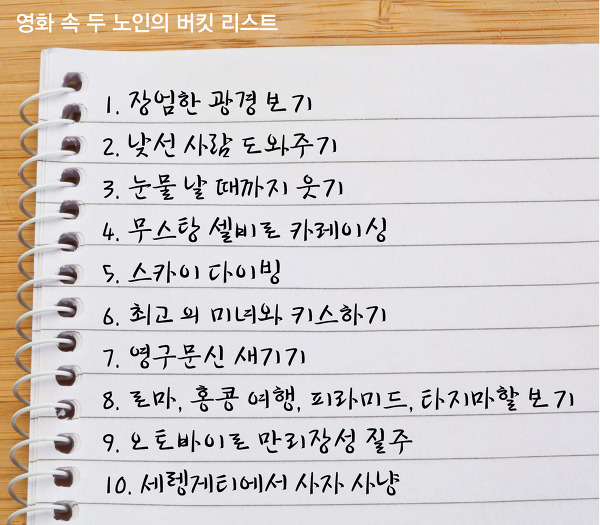 영화 속 두 노인의 버킷 리스트
1. 장엄한 광경 보기
2. 낯선 사람 도와주기
3. 눈물 날 때까지 웃기
4. 무스탕 셀비로 카레이싱
5. 스카이 다이빙
6. 최고의 미녀와 키스하기
7. 영구문신 새기기
8. 로마, 홍콩 여행, 피라미드, 타지마할 보기
9. 오토바이로 만리장성 질주
10. 세렝게티에서 사자 사냥